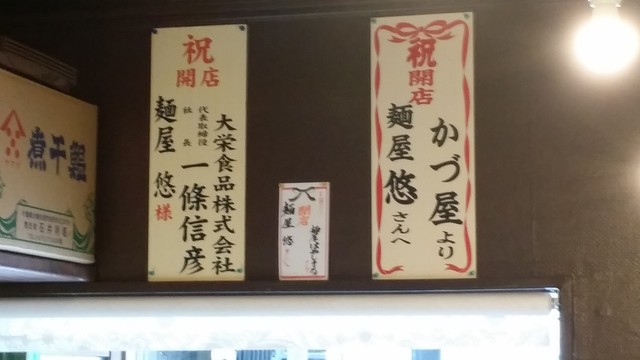 煮干鰮
祝
開店
大栄食品株式会社
代表取締役
社長
一條信彦
麺屋 悠様
開店
麺屋 悠
祝
開店
かづ屋より
麺屋悠さんへ